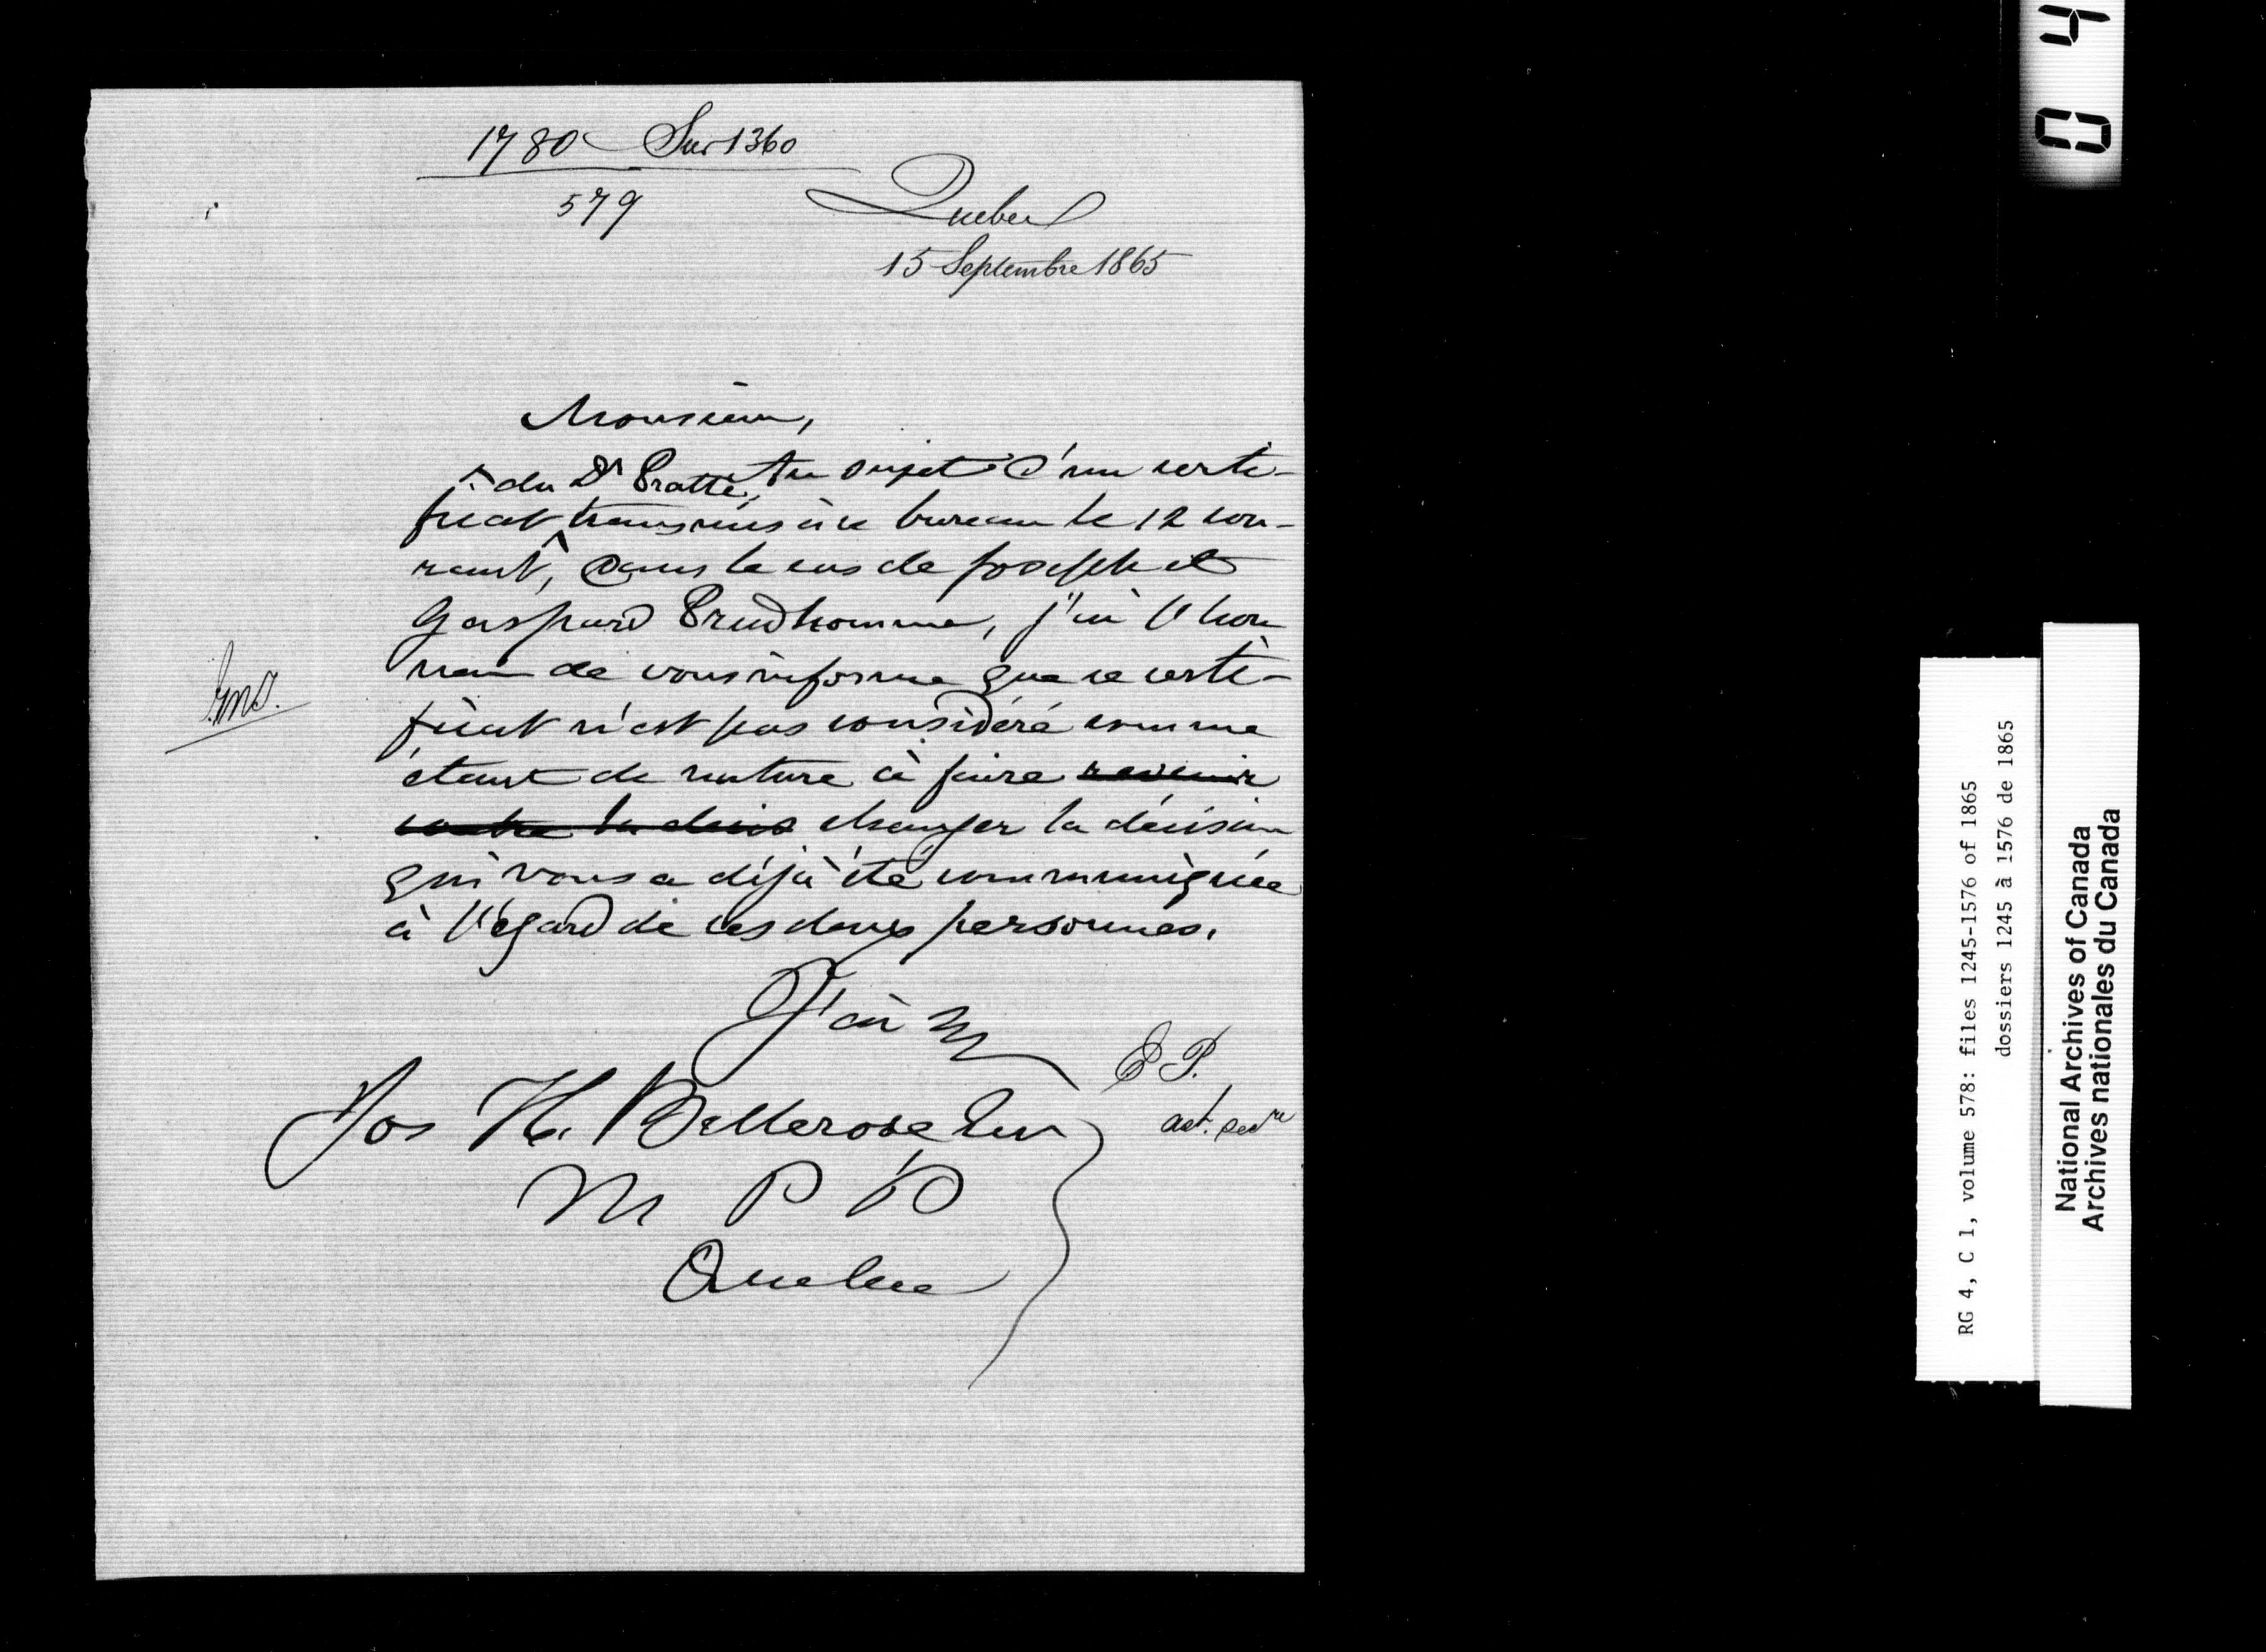 1780 Sur 1360
579
Quebec
15 Septembre 1865
Monsieur,
Au sujet d'un certi-
du Dr Pratte,
ficat transmis à ce bureau le 12 cou-
rant, dans le cas de Joseph et
Gaspard Prudhomme, j'ai l'hon
neur de vous informer que ce certi-
ficat n'est pas considéré comme
étant de nature à faire revenir
contre la décis changer la décision
qui vous a déjà été communiquée
à l'égard de ces deux personnes.
J'ai
E P.
act. secre
Jos H. Bellerose Ecr
M P P
Quebec
0 4
RG 4, C 1, volume 578: files 1245-1576 of 1865
dossiers 1245 à 1576 de 1865
National Archives of Canada
Archives nationales du Canada